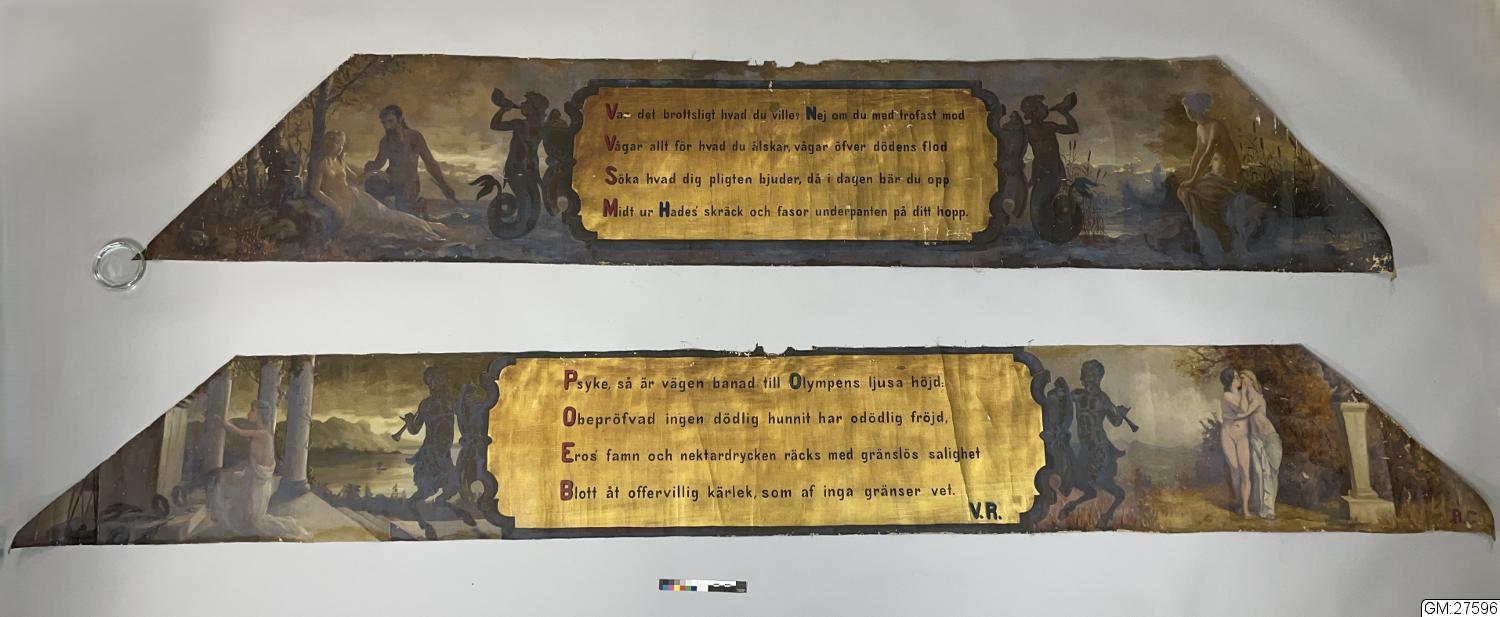 Var det brottsligt hvad du ville? Nej om du med trofast mod
Vågar allt för hvad du älskar, vågar öfver dödens flod
Söka hvad dig pligten bjuder, då i dagen bär du opp
Midt ur Hades' skräck och fasor underpanten på ditt hopp.
Psyke, så är vägen banad till Olympens ljusa höjd:
Obepröfvad ingen dödlig hunnit har odödlig fröjd,
Eros' famn och nektardrycken räcks med gränslös salighet
Blott åt offervillig kärlek, som af inga gränser vet.
V.R.
GM:27596